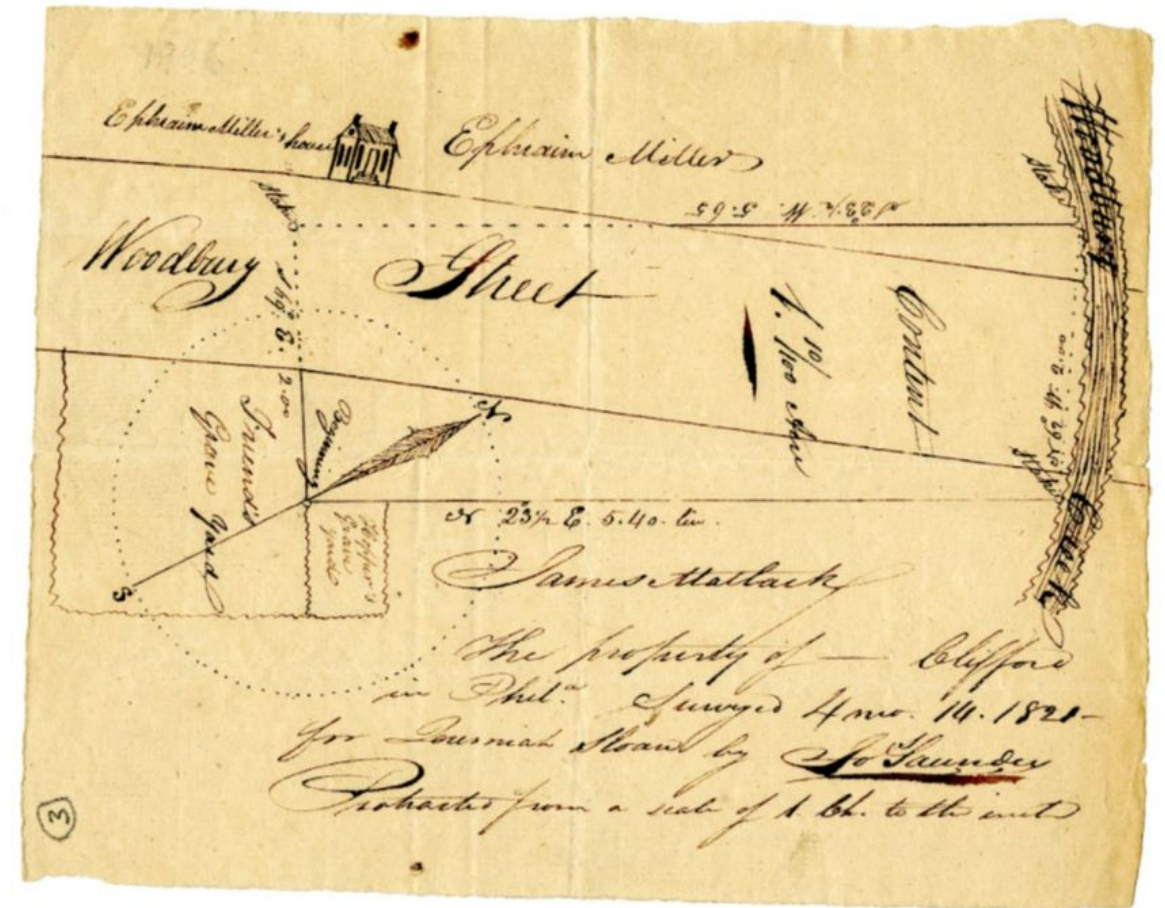 Ephraim Miller's house
Ephraim Miller
Stake
S 23½ W. 5.65
Stake
Woodbury
Woodbury Street
S 69° E. 2.00
Content
1. 10/100 Acre
N. 67 W. 2.00
Stake
Creek
Friend's
Grave Yard
Beginning
N
S
Grave
Yard
N 23½ E. 5.40. to
James Matlack
The property of — Clifford
in Phila. Surveyed 4 mo. 14. 1821-
for Jeremiah Sloan by Jos Saunders
Protracted from a scale of 1. Ch. to the inch
3